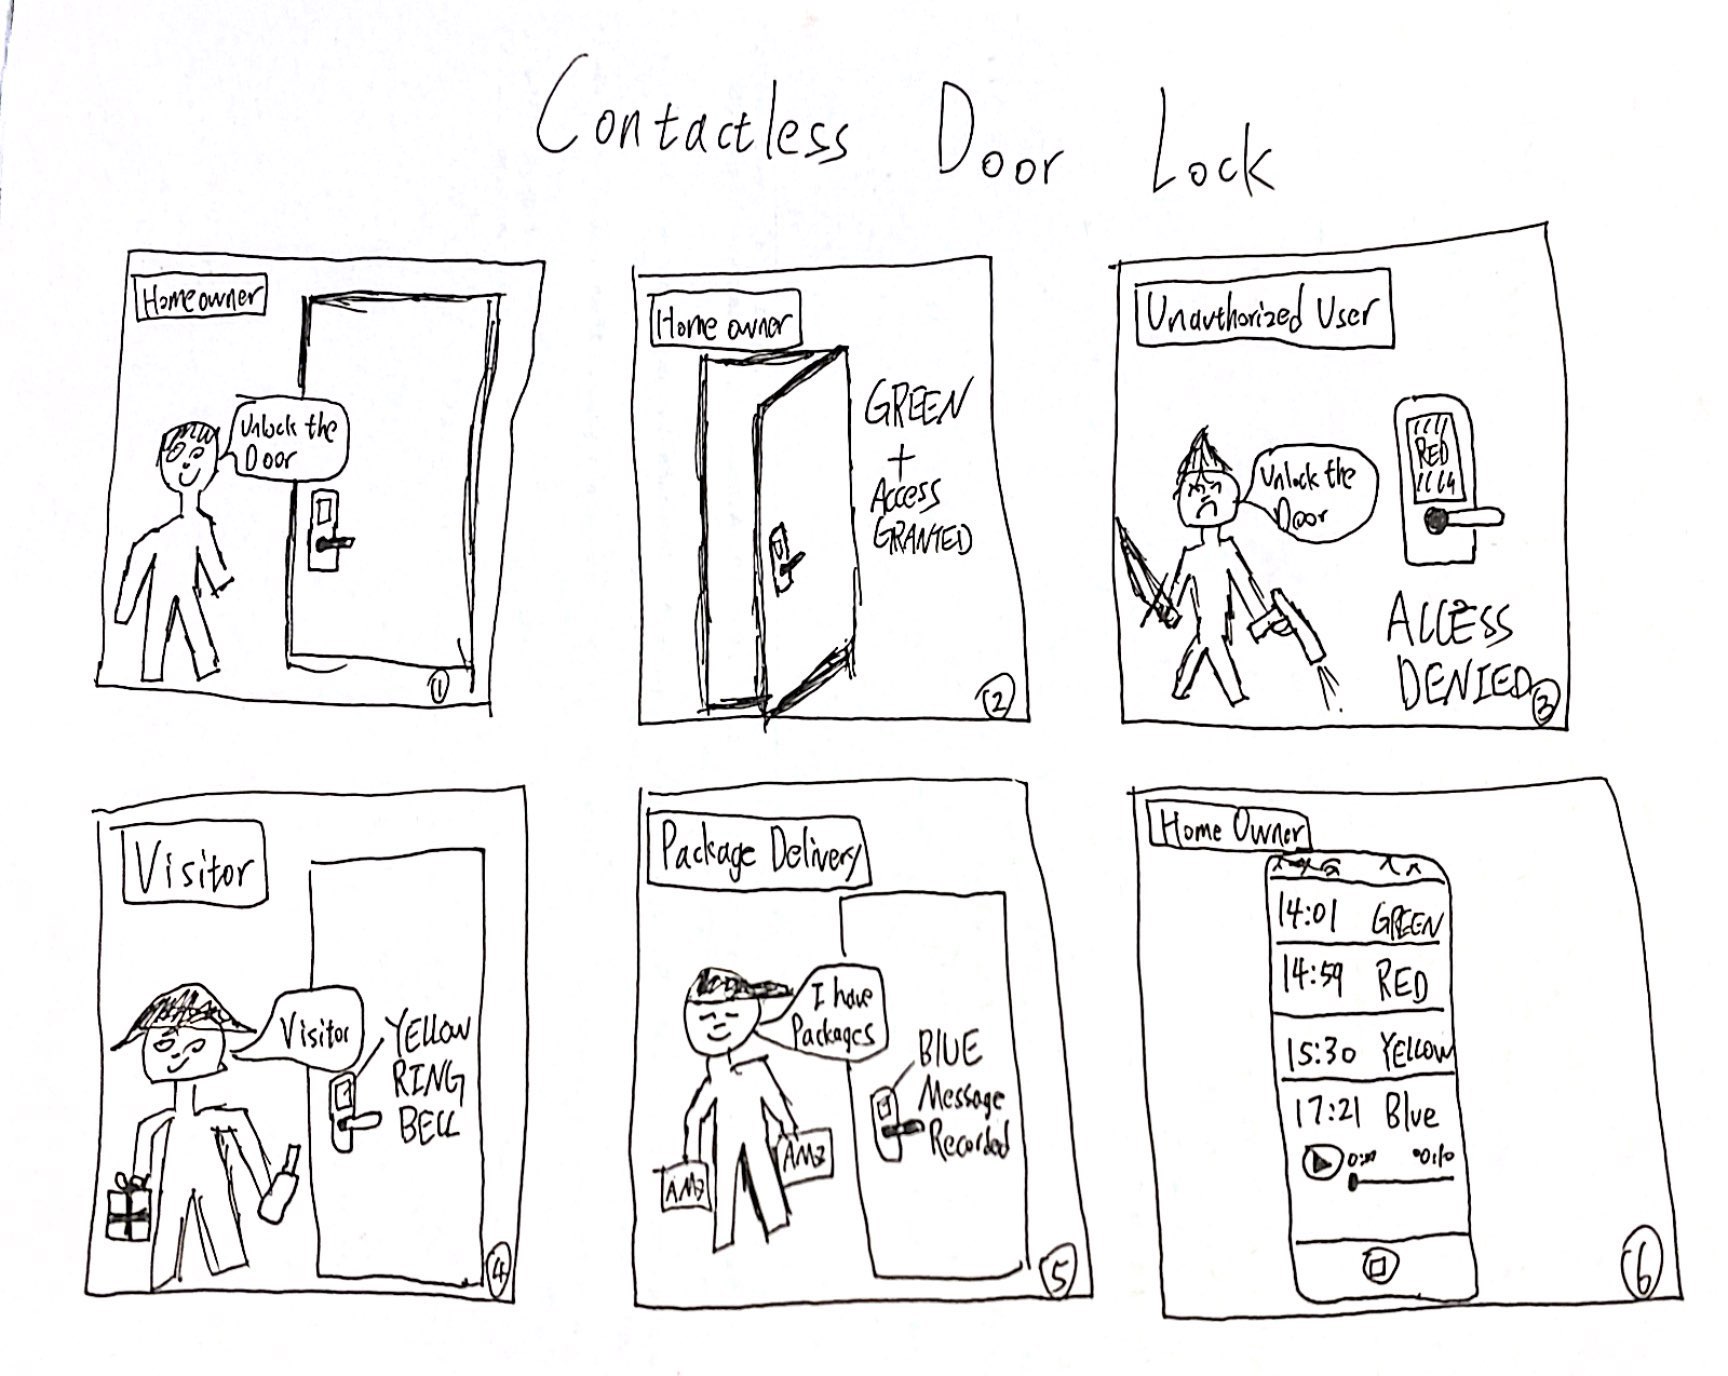 Contactless Door Lock
Homeowner
Unlock the
Door
1
Home owner
GREEN
+
Access
GRANTED
2
Unauthorized User
Unlock the
Door
RED
ACCESS
DENIED
3
Visitor
Visitor
YELLOW
RING
BELL
4
Package Delivery
I have
Packages
BLUE
Message
Recorded
AMZ
AMZ
5
Home Owner
14:01 GREEN
14:59 RED
15:30 YELLOW
17:21 Blue
6